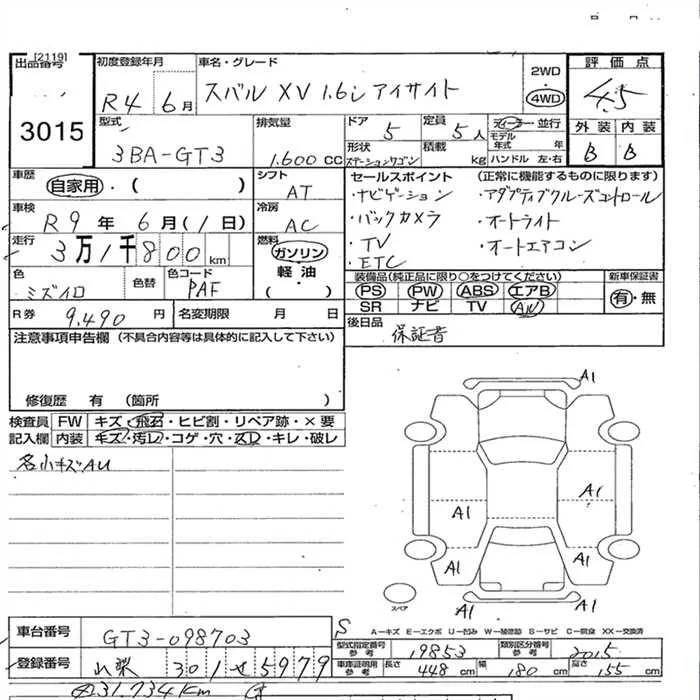 [2119]
出品番号 初度登録年月 車名・グレード 評価点
3015 R4 6月 スバル XV 1.6i アイサイト 2WD 4WD 4.5
型式 排気量 ドア 定員 ディーラー・並行 外装 内装
3BA-GT3 1.600 CC 5 5人 モデル年式 年 B B
形状 ステーションワゴン 積載 kg ハンドル 左・右
車歴 シフト セールスポイント (正常に機能するものに限ります)
自家用・( ) AT ・ナビゲーション ・アダプティブクルーズコントロール
車検 冷房 ・バックカメラ ・オートライト
R9年6月(1日) AC ・TV ・オートエアコン
走行 燃料 ・ETC
3万1千800km ガソリン
軽油
(・)
色 色替 色コード 装備品(純正品に限り○をつけてください) 新車保証書
ミズイロ PAF PS PW ABS エアB 有・無
SR ナビ TV AW
R券 9.490円 名変期限 月 日 後日品
保証書
注意事項申告欄(不具合内容等は具体的に記入して下さい)
修復歴 有 (箇所 )
検査員 FW キズ・飛石・ヒビ割・リペア跡・×要
記入欄 内装 キズ・汚レ・コゲ・穴・スレ・キレ・破レ
各小キズAU
A1
A1
A1
A1
A1
A1
A1
スペア
S
A-キズ E-エクボ U-凹み W-補修跡 S-サビ C-腐食 XX-交換済
車台番号 GT3-098703 型式指定番号 参考 19853 類別区分番号 参考 2015
登録番号 山梨 301 せ 5979 車庫証明用 参考 長さ 448cm 幅 180cm 高さ 155cm
31.734Km